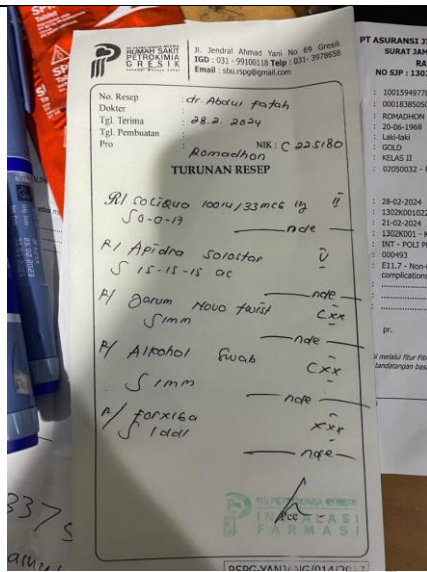 RUMAH SAKIT
PETROKIMIA
GRESIK
Jl. Jendral Ahmad Yani No 69 Gresik
IGD : 031 - 99100118 Telp : 031- 3978658
Email : sbu.rspg@gmail.com
No. Resep :
Dokter : dr. Abdul Fatah
Tgl. Terima : 28.2.2024
Tgl. Pembuatan :
Pro : Romadhon NIK : C 225180
TURUNAN RESEP
R/ Soliqua 100 iu/33 mcg II
S 0-0-17
nde
R/ Apidra Solostar V
S 15-15-15 ac
nde
R/ Jarum Novo twist Cxx
S 1mm
nde
R/ Alkohol Swab Cxx
S 1mm
nde
R/ forxiga xxx
S 1dd1
nde
Pcc
RS PETROKIMIA GRESIK
INSTALASI
FARMASI
PT ASURANSI
SURAT JAM
NO SJP : 1302
1001594977
0001838505
ROMADHON
20-06-1968
Laki-laki
GOLD
KELAS II
02050032 -
28-02-2024
1302K001022
21-02-2024
1302K001 -
INT - POLI
000493
E11.7 - Non-
complications
pr.
337